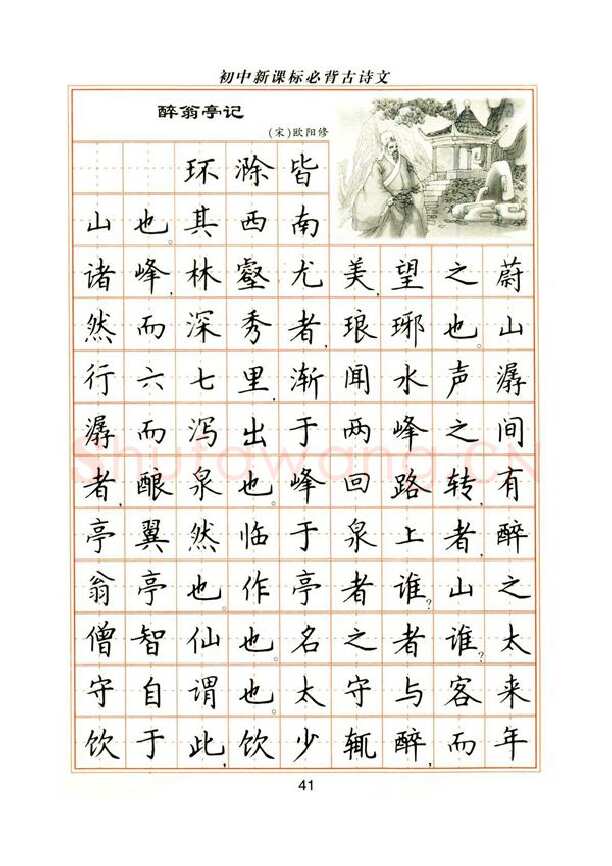 初中新课标必背古诗文
醉翁亭记
(宋)欧阳修
环滁皆
山也。其西南
诸峰,林壑尤美,望之蔚
然而深秀者,琅琊也。山
行六七里,渐闻水声潺
潺而泻出于两峰之间
者,酿泉也。峰回路转,有
亭翼然临于泉上者,醉
翁亭也。作亭者谁?山之
僧智仙也。名之者谁?太
守自谓也。太守与客来
饮于此,饮少辄醉,而年
41
Shufawang.CN